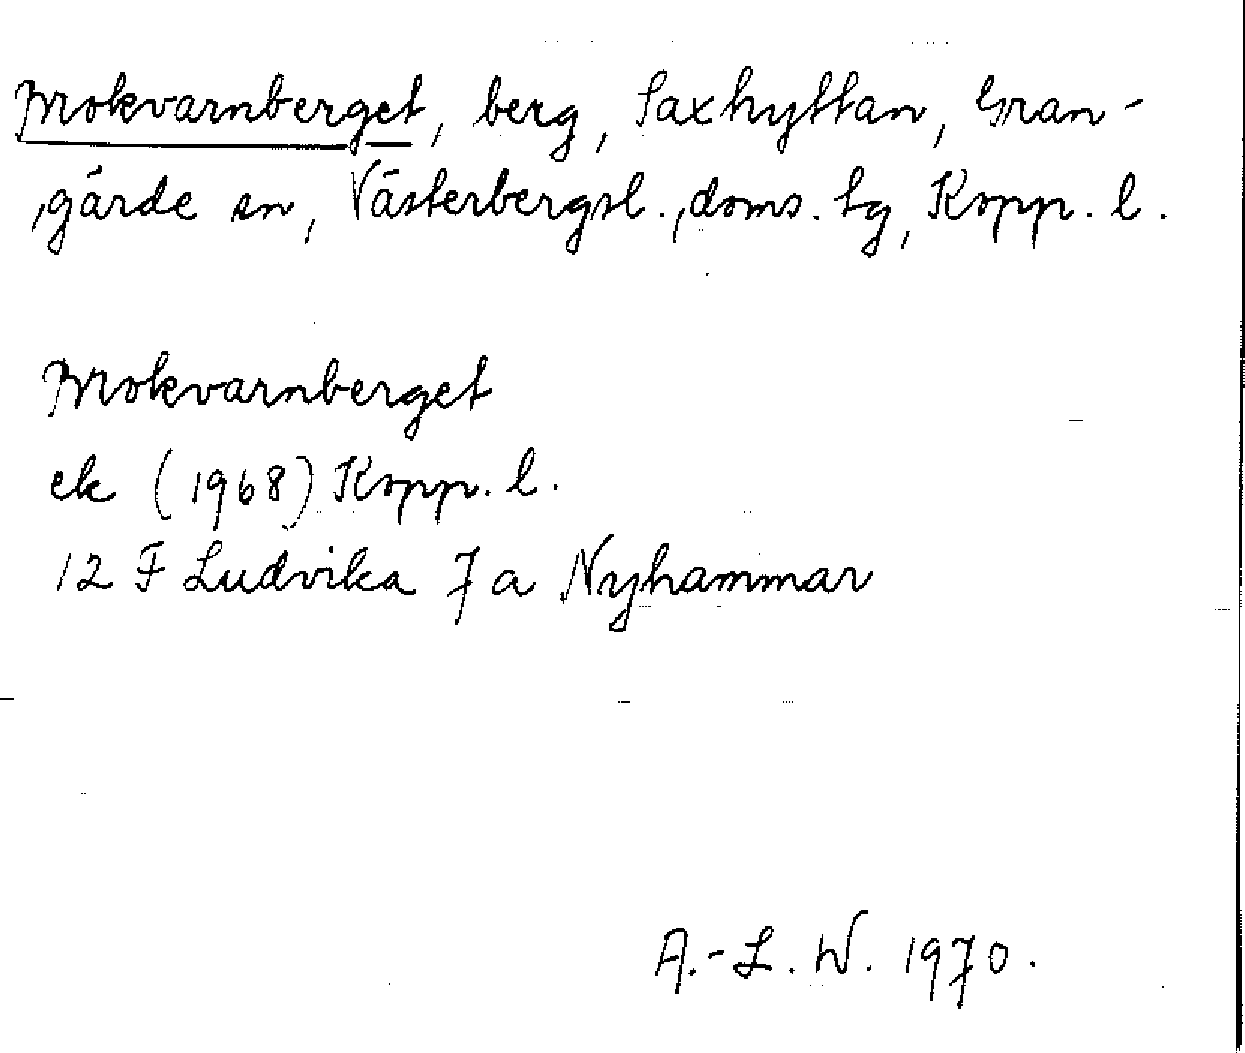 Mokvarnberget, berg, Saxhyttan, Gran-
gärde sn, Västerbergsl., doms. tg, Kopp. l.
Mokvarnberget
ek (1968) Kopp. l.
12 F Ludvika 7 a Nyhammar
A.-L. W. 1970.